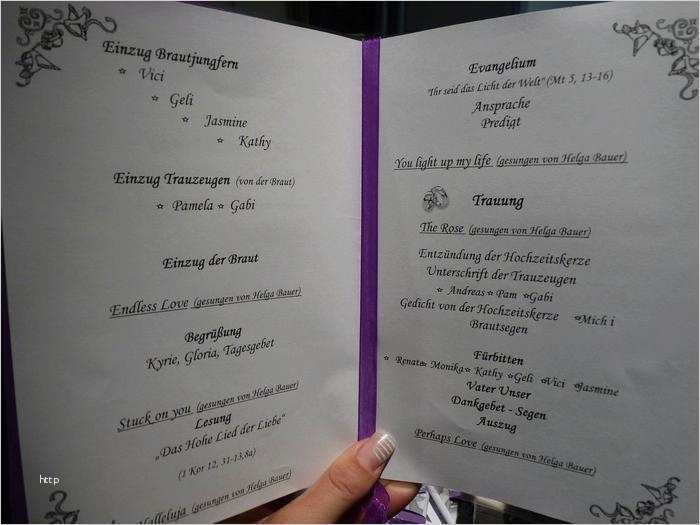 Einzug Brautjungfern
☆ Vici
☆ Geli
☆ Jasmine
☆ Kathy
Einzug Trauzeugen (von der Braut)
☆ Pamela ☆ Gabi
Einzug der Braut
Endless Love (gesungen von Helga Bauer)
Begrüßung
Kyrie, Gloria, Tagesgebet
Stuck on you (gesungen von Helga Bauer)
Lesung
„Das Hohe Lied der Liebe“
(1 Kor 12, 31-13,8a)
Halleluja (gesungen von Helga Bauer)
http
Evangelium
"Ihr seid das Licht der Welt" (Mt 5, 13-16)
Ansprache
Predigt
You light up my life (gesungen von Helga Bauer)
Trauung
The Rose (gesungen von Helga Bauer)
Entzündung der Hochzeitskerze
Unterschrift der Trauzeugen
☆ Andreas ☆ Pam ☆Gabi
Gedicht von der Hochzeitskerze ☆Mich i
Brautsegen
Fürbitten
☆ Renate☆ Monika☆ Kathy ☆Geli ☆Vici ☆Jasmine
Vater Unser
Dankgebet - Segen
Auszug
Perhaps Love (gesungen von Helga Bauer)